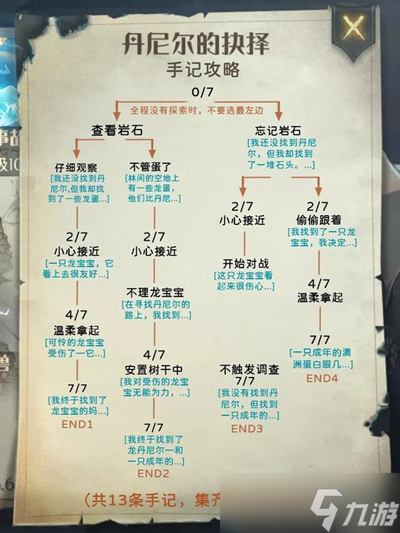 丹尼尔的抉择
手记攻略
0/7
全程没有探索时,不要选最左边
查看岩石
忘记岩石
[我还没找到丹尼
尔,但我却找到了
一堆石头。...]
仔细观察
[我还没找到丹
尼尔,但我却找
到了一些龙蛋...]
不管蛋了
[林间的空地上
有一些龙蛋,
他们比丹尼...]
2/7
小心接近
[一只龙宝宝,它
看上去很友好...]
2/7
小心接近
2/7
小心接近
2/7
偷偷跟着
[我找到了一只龙
宝宝,我决定...]
不理龙宝宝
[在寻找丹尼尔的
路上,我找到...]
开始对战
[这只龙宝宝看
起来很伤心...]
4/7
温柔拿起
4/7
温柔拿起
[可怜的龙宝宝
受伤了一它...]
4/7
安置树干中
[我对受伤的龙宝
宝无能为力,...]
不触发调查
7/7
[我没有找到丹
尼尔,但找到
一只成年的...]
END3
7/7
[一只成年的澳
洲蛋白眼几...]
END4
7/7
[我终于找到了
龙宝宝的妈...]
END1
7/7
[我终于找到了
龙丹尼尔一和
一只成年的...]
END2
(共13条手记,集齐
九游